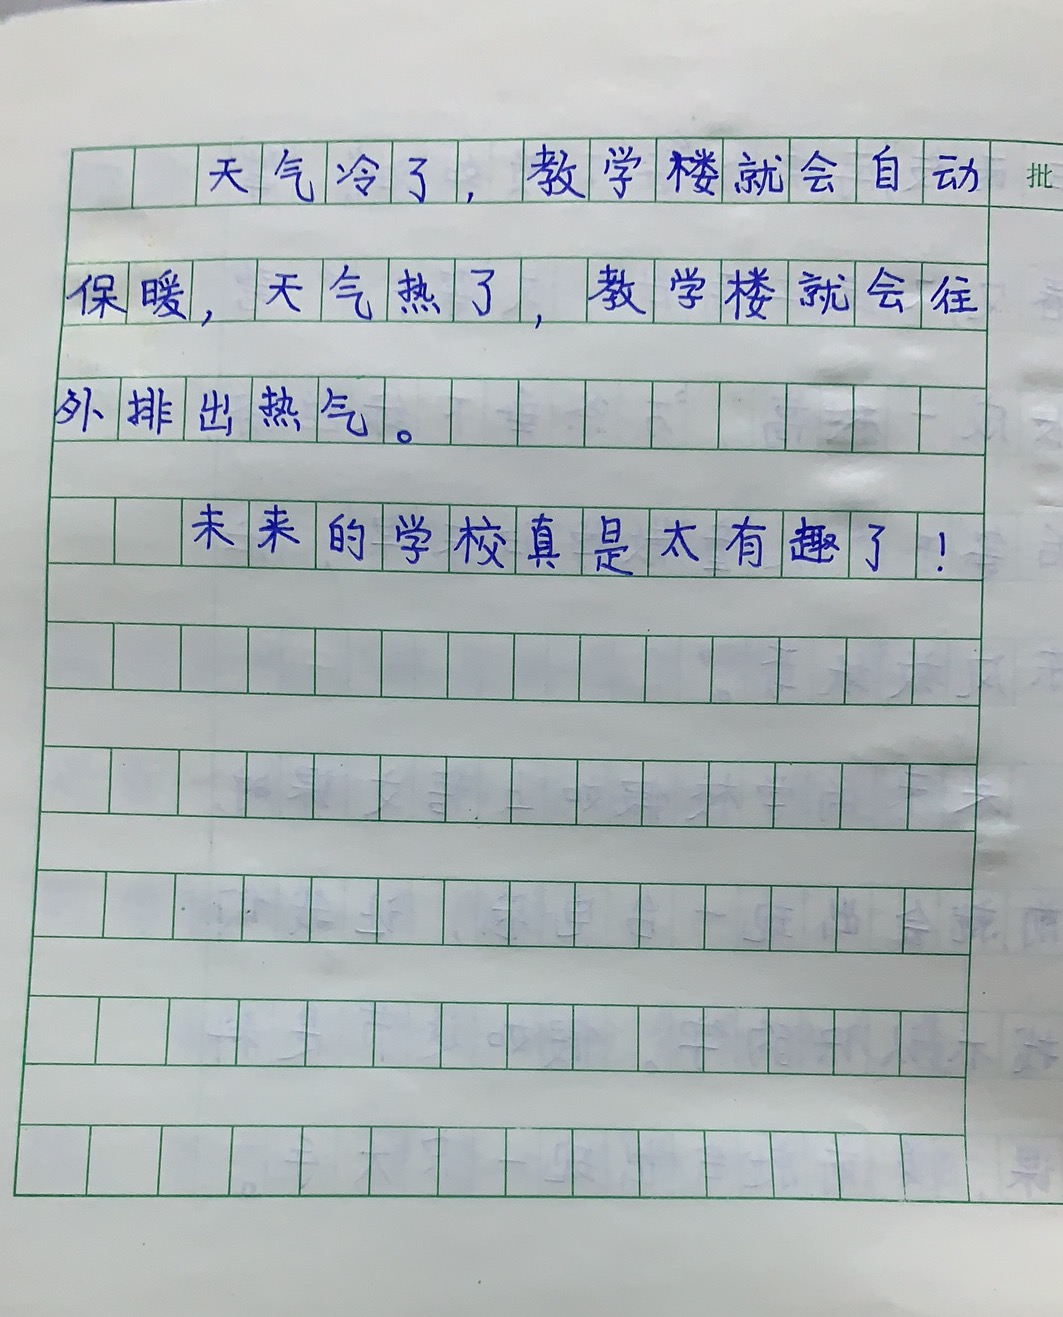 天气冷了，教学楼就会自动
批
保暖，天气热了，教学楼就会往
外排出热气。
未来的学校真是太有趣了！